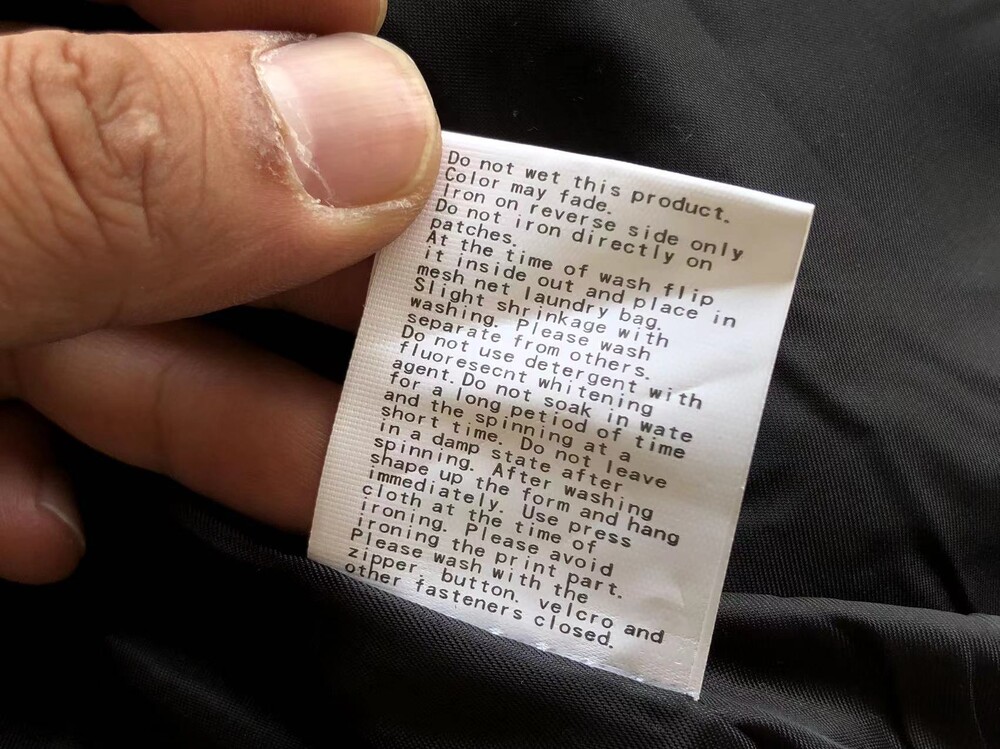 Do not wet this product.
Color may fade.
Iron on reverse side only
Do not iron directly on
patches.
At the time of wash flip
it inside out and place in
mesh net laundry bag.
Slight shrinkage with
washing. Please wash
separate from others.
Do not use detergent with
fluoresecnt whitening
agent. Do not soak in wate
for a long petiod of time
and the spinning at a
short time. Do not leave
in a damp state after
spinning. After washing
shape up the form and hang
immediately. Use press
cloth at the time of
ironing. Please avoid
ironing the print part.
Please wash with the
zipper, button, velcro and
other fasteners closed.